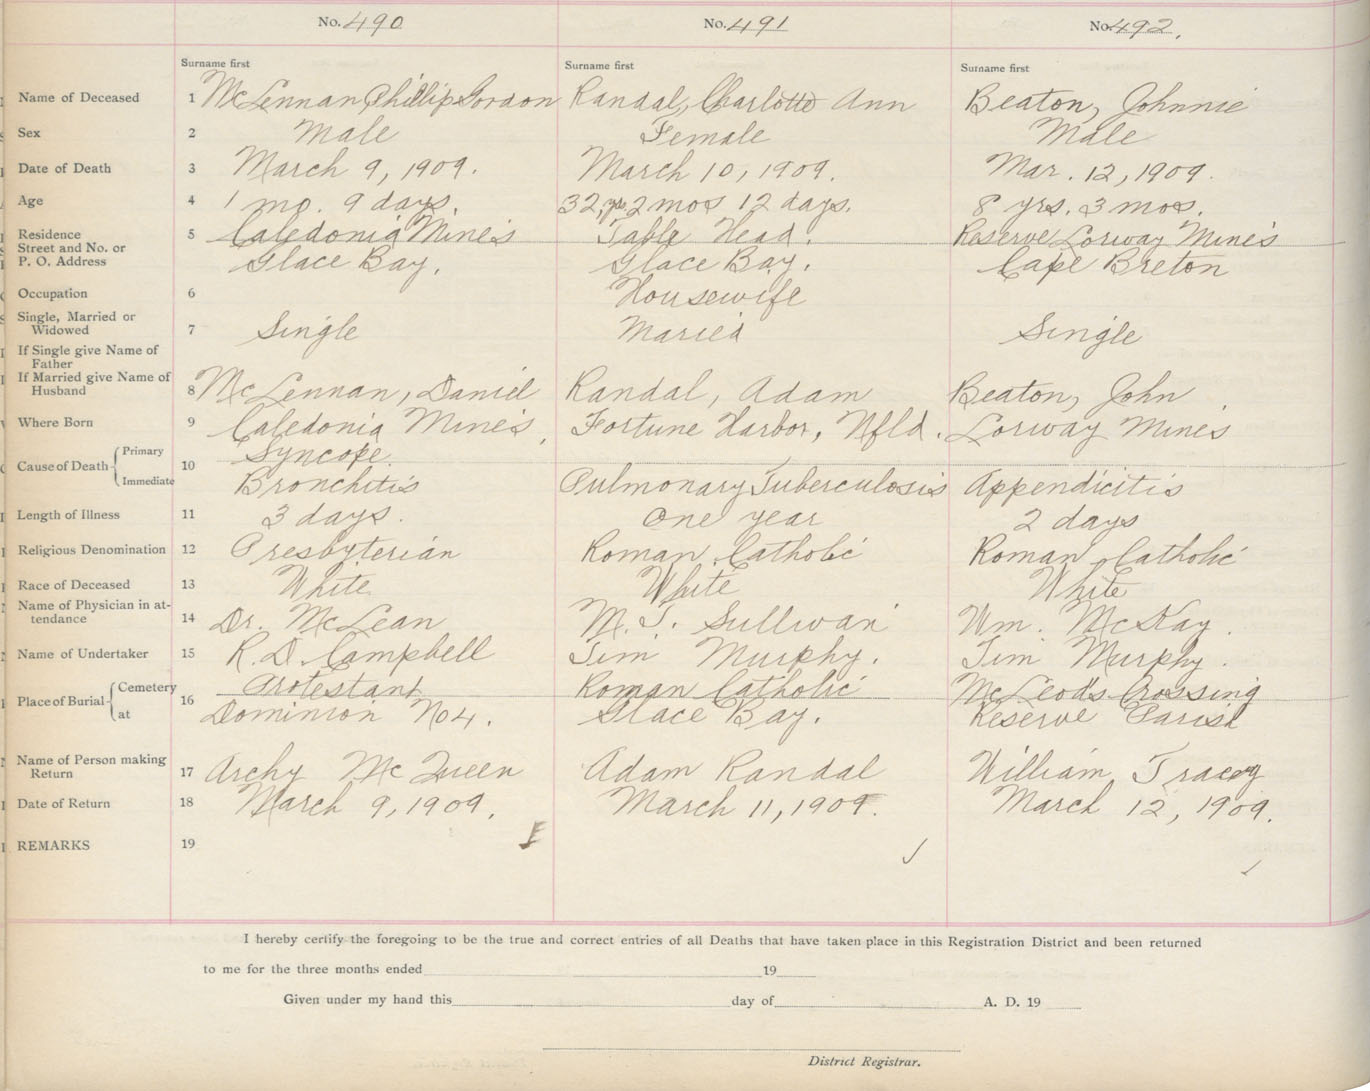 No. 490 No. 491 No. 492.
Surname first Surname first Surname first
Name of Deceased 1 McLennan Phillip Gordon Randal, Charlotte Ann Beaton, Johnnie
Sex 2 Male Female Male
Date of Death 3 March 9, 1909. March 10, 1909. Mar. 12, 1909.
Age 4 1 mo. 9 days. 32 yrs 2 mos 12 days. 8 yrs. 3 mos.
Residence 5 Caledonia Mines Table Head. Reserve Lorway Mines
Street and No. or
P. O. Address Glace Bay. Glace Bay. Cape Breton
Occupation 6 Housewife
Single, Married or
Widowed 7 Single Maried Single
If Single give Name of
Father
If Married give Name of
Husband 8 McLennan, Daniel Randal, Adam Beaton, John
Where Born 9 Caledonia Mines, Fortune Harbor, Nfld. Lorway Mines
Cause of Death Primary 10 Syncope
Immediate Bronchitis Pulmonary Tuberculosis Appendicitis
Length of Illness 11 3 days. One year 2 days
Religious Denomination 12 Presbyterian Roman Catholic Roman Catholic
Race of Deceased 13 White White White
Name of Physician in at-
tendance 14 Dr. McLean M. T. Sullivan Wm. McKay.
Name of Undertaker 15 R. D. Campbell Tim Murphy. Tim Murphy.
Place of Burial Cemetery 16 Protestant Roman Catholic McLeods Crossing
at Dominion No 4. Glace Bay. Reserve Parish
Name of Person making
Return 17 Archy McQueen Adam Randal William Tracey
Date of Return 18 March 9, 1909. March 11, 1909. March 12, 1909.
REMARKS 19
I hereby certify the foregoing to be the true and correct entries of all Deaths that have taken place in this Registration District and been returned
to me for the three months ended 19
Given under my hand this day of A. D. 19
District Registrar.